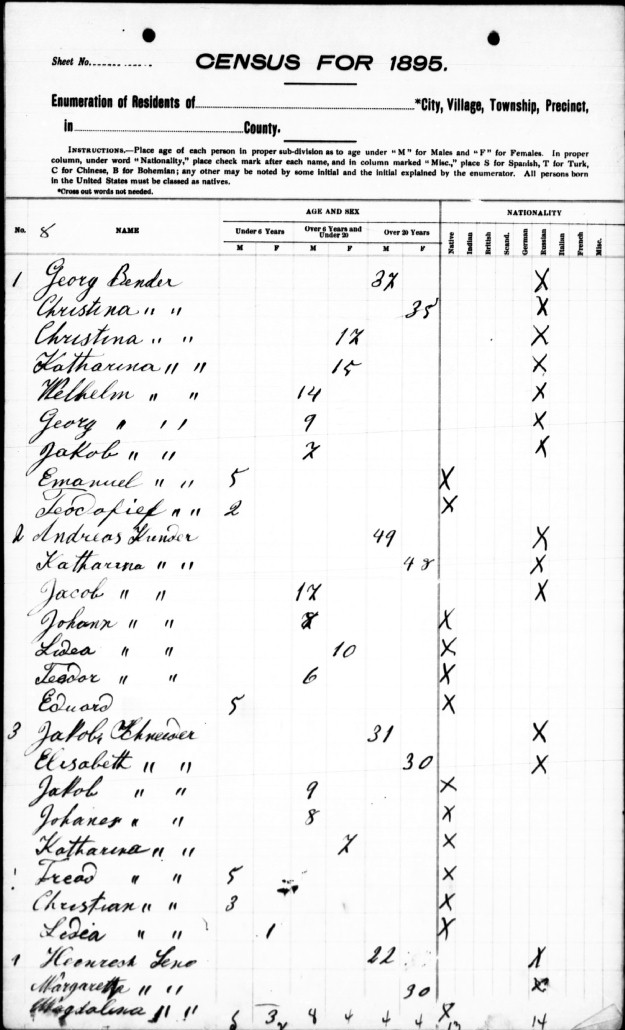 Sheet No.
CENSUS FOR 1895.
Enumeration of Residents of *City, Village, Township, Precinct,
in County.
INSTRUCTIONS.—Place age of each person in proper sub-division as to age under "M" for Males and "F" for Females. In proper
column, under word "Nationality," place check mark after each name, and in column marked "Misc.," place S for Spanish, T for Turk,
C for Chinese, B for Bohemian; any other may be noted by some initial and the initial explained by the enumerator. All persons born
in the United States must be classed as natives.
*Cross out words not needed.
AGE AND SEX NATIONALITY
No. 8 NAME Under 6 Years Over 6 Years and Under 20 Over 20 Years Native Indian British Scand. German Russian Italian French Misc.
M F M F M F
1 Georg Bender 37 X
Christina " " 35 X
Christina " " 17 X
Katharina " " 15 X
Welhelm " " 14 X
Georg " " 9 X
Jakob " " 7 X
Emanuel " " 5 X
" " 2 X
2 Andreas 49 X
Katharina " " 48 X
Jacob " " 17 X
Johann " " X
Lidea " " 10 X
Teodor " " 6 X
Eduard 5 X
3 Jakob Schneider 31 X
Elisabeth " " 30 X
Jakob " " 9 X
Johanes " " 8 X
Katharina " " 7 X
Fread " " 5 X
Christian " " 3 X
Lidia " " 1 X
22 X
Margaretta " " 30 X
Magdalina " " X
5 3 8 4 4 4 14